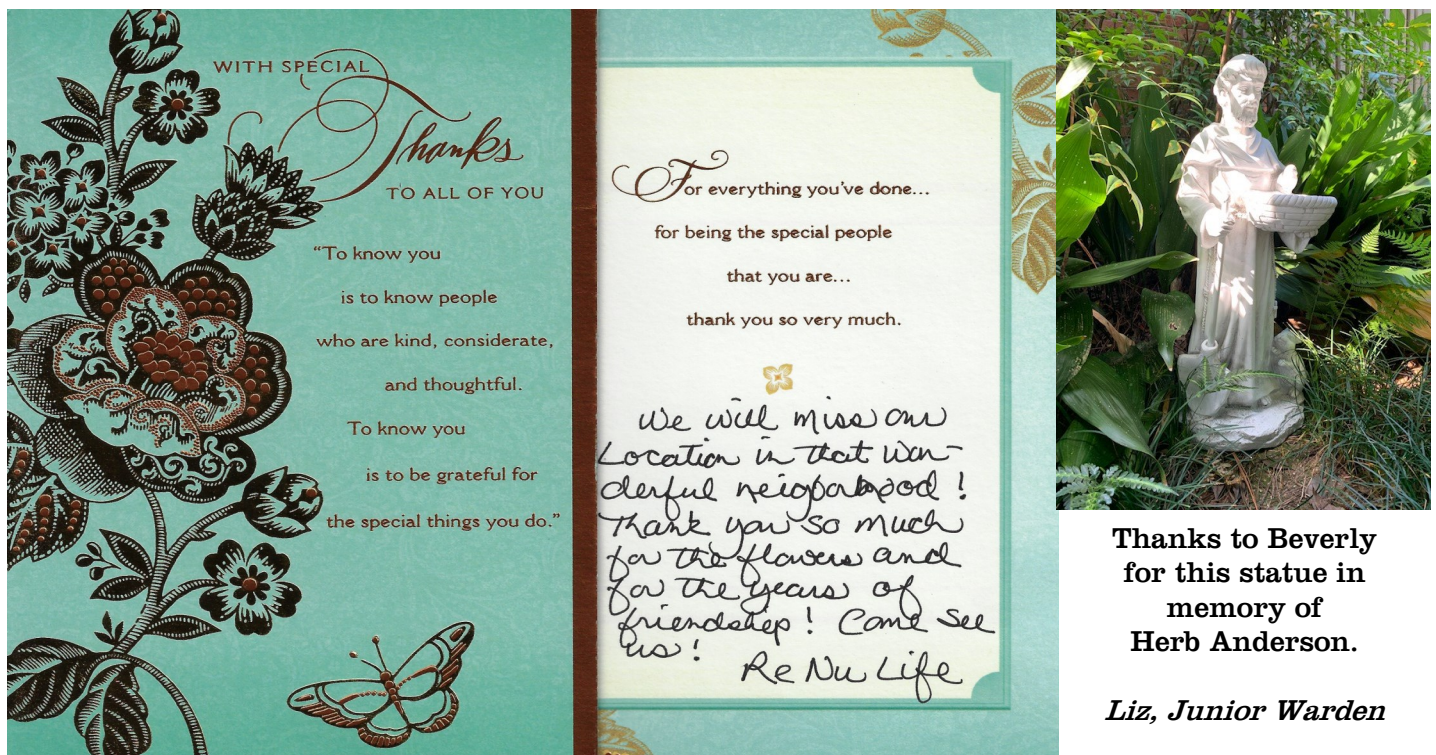 WITH SPECIAL
Thanks
TO ALL OF YOU
“To know you
is to know people
who are kind, considerate,
and thoughtful.
To know you
is to be grateful for
the special things you do.”
For everything you’ve done...
for being the special people
that you are...
thank you so very much.
We will miss our
Location in that won-
derful neigborhood!
Thank you so much
for the flowers and
for the years of
friendship! Come See
us!
Re Nu Life
Thanks to Beverly
for this statue in
memory of
Herb Anderson.
Liz, Junior Warden